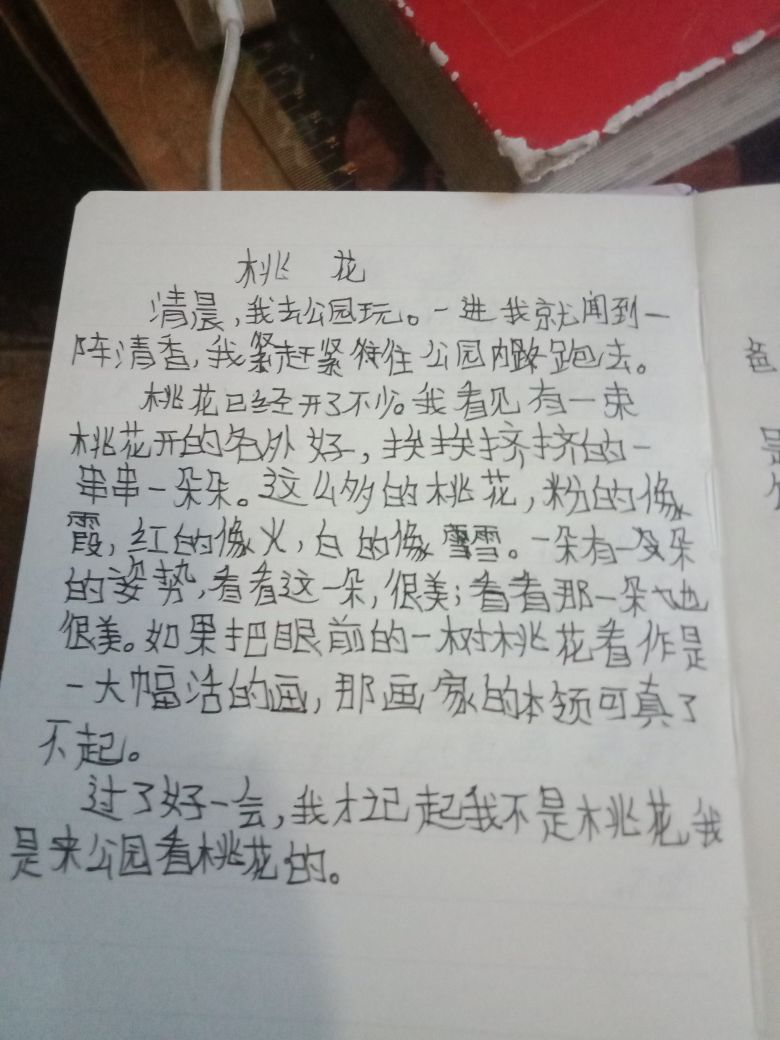 桃 花
清晨,我去公园玩。一进我就闻到一
阵清香,我紧赶紧往公园内路跑去。
桃花已经开了不少。我看见有一束
桃花开的各外好,挨挨挤挤的一
串串一朵朵。这么多的桃花,粉的像
霞,红的像火,白的像雪。一朵有一朵
的姿势,看看这一朵,很美;看看那一朵也
很美。如果把眼前的一树桃花看作是
一大幅活的画,那画家的本领可真了
不起。
过了好一会,我才记起我不是桃花,我
是来公园看桃花的。
色
是